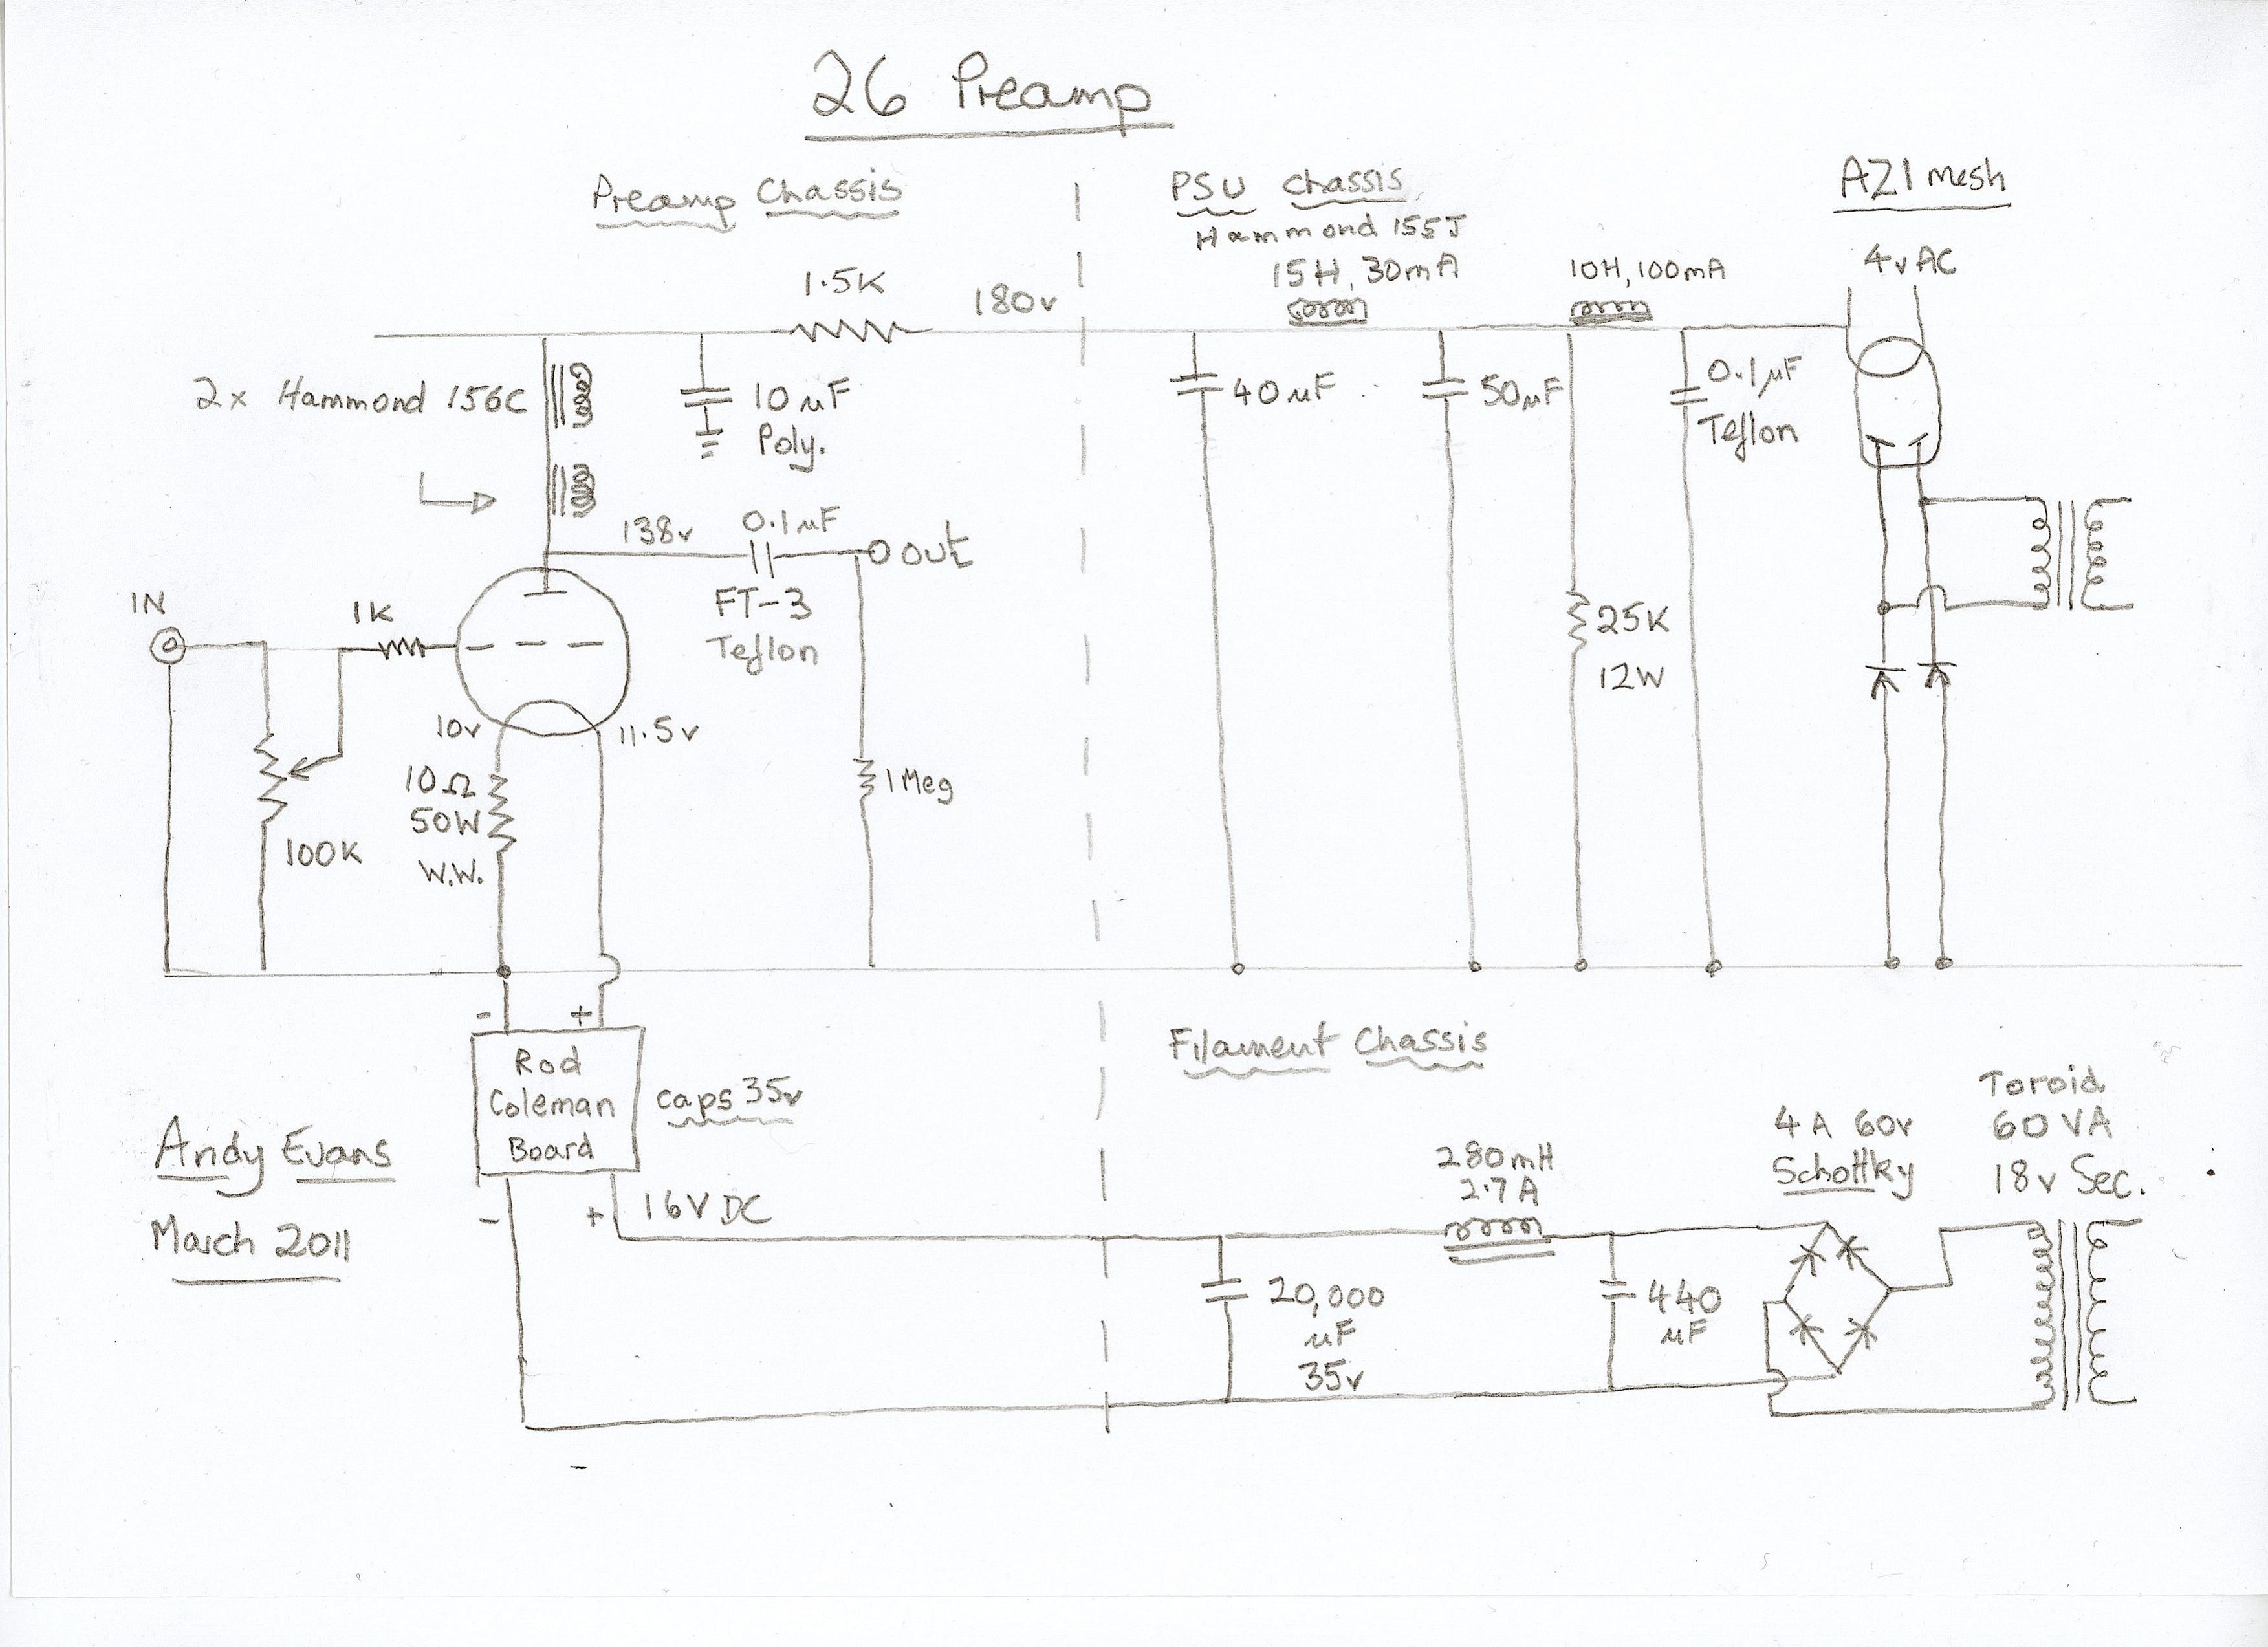 26 Preamp
Preamp Chassis
PSU Chassis
Hammond 155J
15H, 30mA
10H, 100mA
AZ1 mesh
4v AC
1.5K
180v
2x Hammond 156C
10 µF
Poly.
40 µF
50µF
0.1µF
Teflon
138v
0.1µF
OUT
FT-3
Teflon
IN
1K
25K
12W
10v
11.5v
10Ω
50W
W.W.
100K
1 Meg
- +
Rod
Coleman
Board
caps 35v
- +
16V DC
Filament Chassis
280mH
2.7A
4A 60v
Schottky
Toroid
60VA
18v Sec.
20,000
µF
35v
440
µF
Andy Evans
March 2011